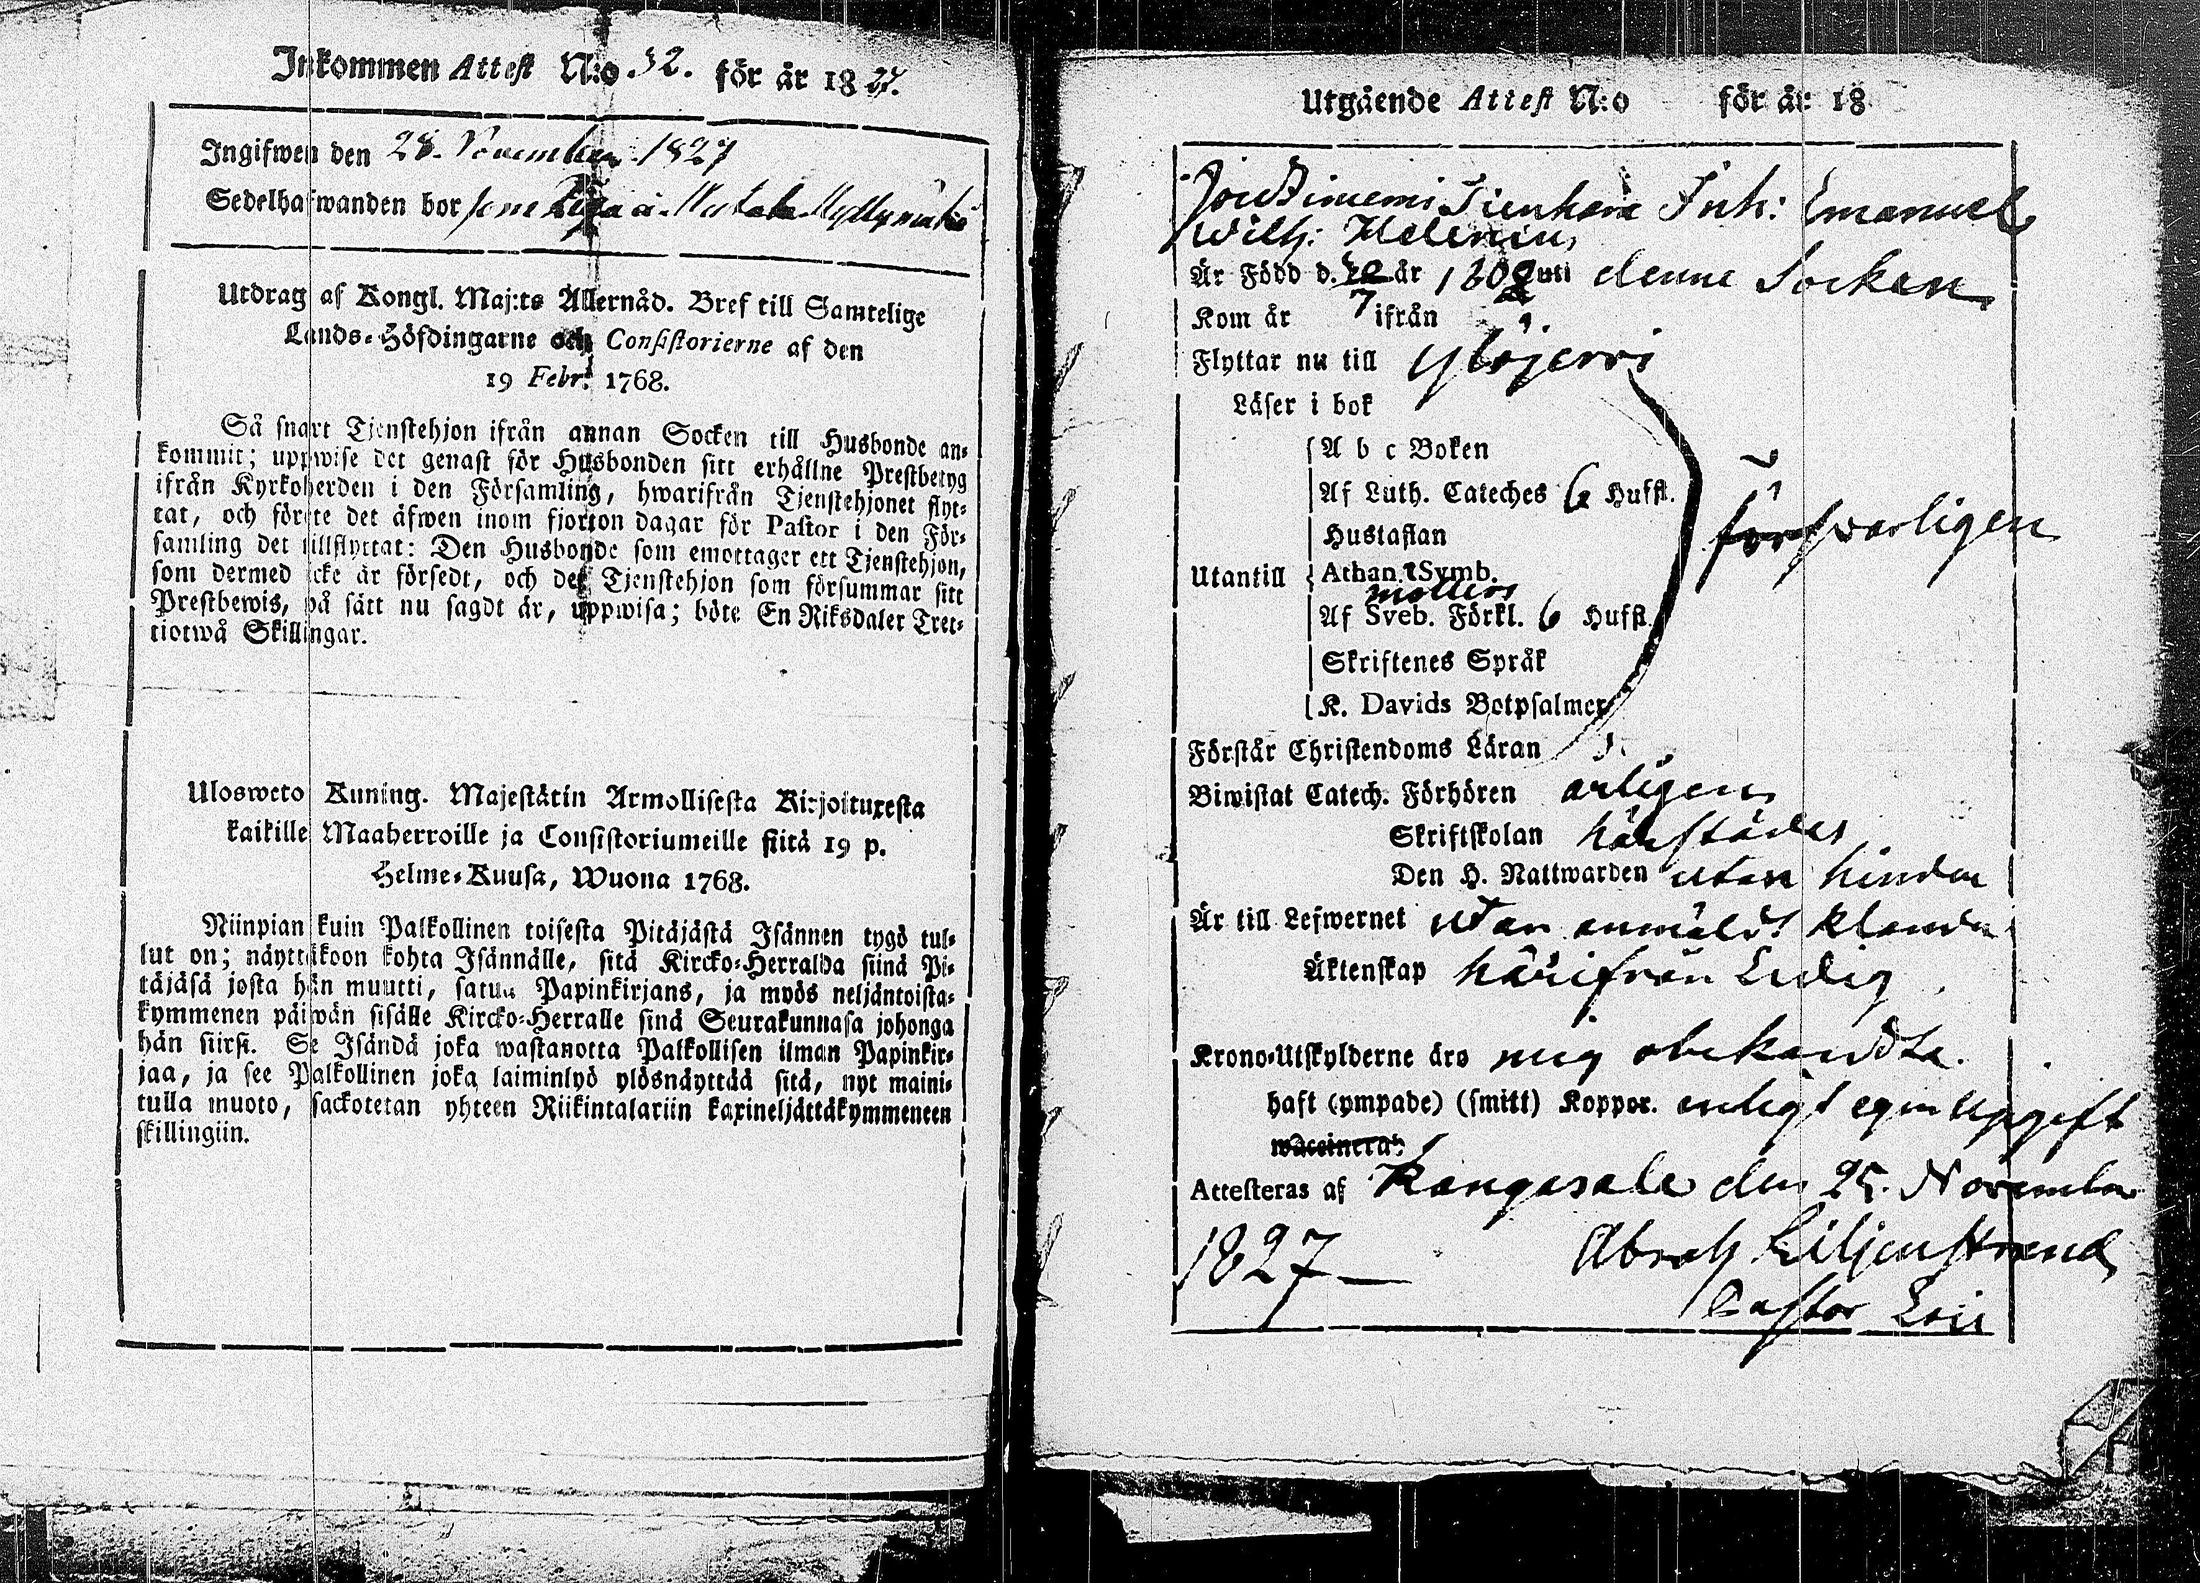 Inkommen Attest N:o 32. för år 1827.
Ingifwen den 28. November 1827
Sedelhafwanden bor som Piga å Mutala Myllymäki
Utdrag af Kongl. Maj:ts Allernåd. Bref till Samtelige
Lands-Höfdingarne och Consistorierne af den
19 Febr. 1768.
Så snart Tjenstehjon ifrån annan Socken till Husbonde an-
kommit; uppwise det genast för Husbonden sitt erhållne Prestbetyg
ifrån Kyrkoherden i den Församling, hwarifrån Tjenstehjonet flyt-
tat, och förete det äfwen inom fjorton dagar för Pastor i den För-
samling det tillflyttat: Den Husbonde som emottager ett Tjenstehjon,
som dermed icke är försedt, och det Tjenstehjon som försummar sitt
Prestbewis, på sätt nu sagdt är, uppwisa; böte En Riksdaler Tret-
tiotwå Skillingar.
Ulosweto Kuning. Majestätin Armollisesta Kirjoituxesta
kaikille Maaherroille ja Consistoriumeille siitä 19 p.
Helme-Kuusa, Wuona 1768.
Niinpian kuin Palkollinen toisesta Pitäjästä Isännen tygö tul-
lut on; näyttäkoon kohta Isännälle, sitä Kircko-Herralda siinä Pi-
täjäsä josta hän muutti, satua Papinkirjans, ja myös neljäntoista-
kymmenen päiwän sisälle Kircko-Herralle sinä Seurakunnasa johonga
hän siirsi. Se Isändä joka wastanotta Palkollisen ilman Papinkir-
jaa, ja see Palkollinen joka laiminlyö ylösnäyttää sitä, nyt maini-
tulla muoto, sackotetan yhteen Riikintalariin kaxineljättäkymmeneen
skillingiin.
Utgående Attest N:o för år 18
Inh: Emanuel
Wilh: Helenius
Är Född d. 7 år 1802 uti denne Socken
Kom år ifrån
Flyttar nu till Ylöjervi
Läser i bok
A b c Boken
Af Luth. Cateches 6 Hufst.
Hustaflan
försvarligen
Utantill Athan. Symb.
möllers
Af Sveb. Förkl. 6 Hufst.
Skriftenes Språk
K. Davids Botpsalmer
Förstår Christendoms Läran
Biwistat Catech. Förhören årligen
Skriftskolan härstädes
Den H. Nattwarden utan hinder
Är till Lefwernet utan anmäldt klander
Äktenskap härifrån Ledig
Krono-Utskylderne äro mig obekandta.
haft (ympade) (smitt) Koppor. enligt egen Uppgift
waccinerad:
Attesteras af Kangasala den 25. November
1827 Abrah Liljenstrand
Pastor Loci